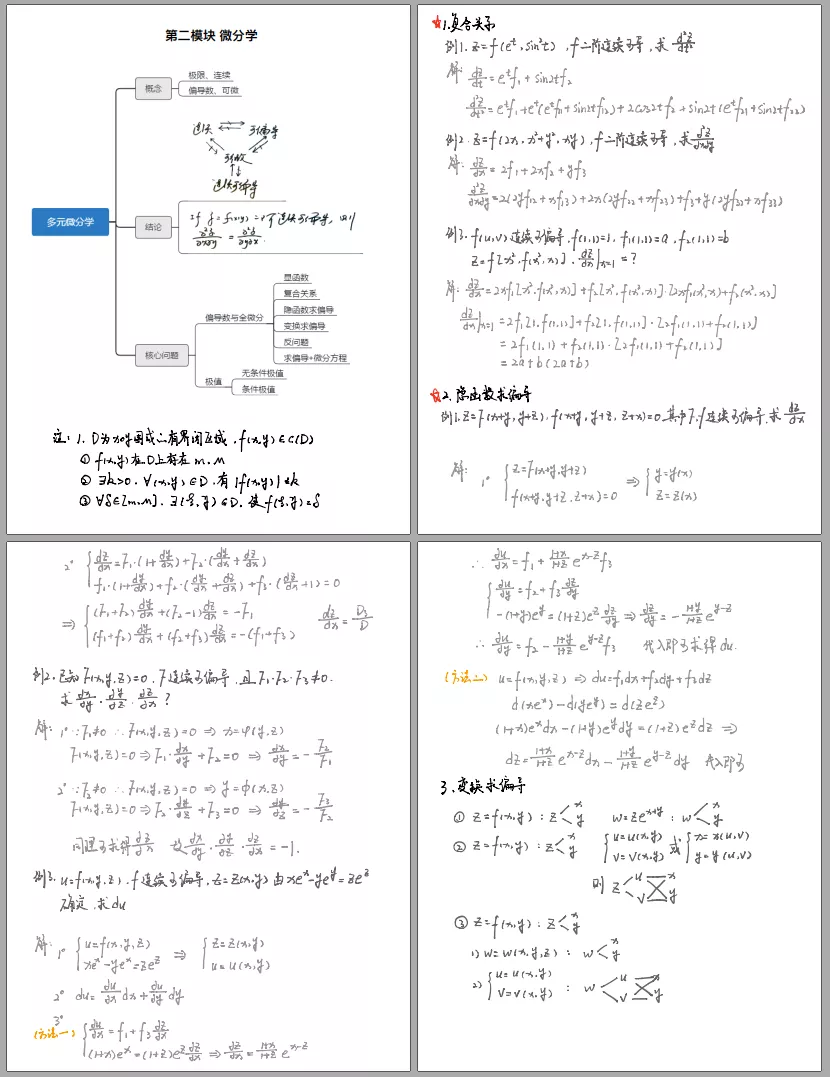 第二模块 微分学
多元微分学
概念
极限、连续
偏导数、可微
连续
可偏导
可微
连续可偏导
结论
若 z = f(x,y) 二阶连续可偏导, 则
∂²z/∂x∂y = ∂²z/∂y∂x.
核心问题
偏导数与全微分
显函数
复合关系
隐函数求偏导
变换求偏导
反问题
求偏导+微分方程
极值
无条件极值
条件极值
注: 1. D为xoy面或二有界闭区域, f(x,y)∈C(D)
① f(x,y)在D上存在m, M
② ∃k>0, ∀(x,y)∈D, 有|f(x,y)|≤k
③ ∀δ∈[m,M], ∃(ξ,η)∈D, 使f(ξ,η)=δ
★1.复合关系
例1. Z=f(e^t, sin²t), f二阶连续可导, 求 d²z/dt²
解: dz/dt = e^t f₁ + sin2t f₂
d²z/dt² = e^t f₁ + e^t(e^t f₁₁ + sin2t f₁₂) + 2cos2t f₂ + sin2t(e^t f₂₁ + sin2t f₂₂)
例2. Z=f(2x, x²+y², xy), f二阶连续可导, 求 ∂²z/∂x∂y
解: ∂z/∂x = 2f₁ + 2xf₂ + yf₃
∂²z/∂x∂y = 2(2yf₁₂ + xf₁₃) + 2x(2yf₂₂ + xf₂₃) + f₃ + y(2yf₃₂ + xf₃₃)
例3. f(u,v)连续可偏导, f(1,1)=1, f₁(1,1)=a, f₂(1,1)=b
Z=f[x², f(x²,x)], dz/dx|x=1 = ?
解: dz/dx = 2xf₁[x², f(x²,x)] + f₂[x², f(x²,x)]·[2xf₁(x²,x)+f₂(x²,x)]
dz/dx|x=1 = 2f₁[1, f(1,1)] + f₂[1, f(1,1)]·[2f₁(1,1)+f₂(1,1)]
= 2f₁(1,1) + f₂(1,1)·[2f₁(1,1)+f₂(1,1)]
= 2a+b(2a+b)
★2. 隐函数求偏导
例1. Z=F(x+y, y+z), f(x+y, y+z, z+x)=0, 其中F, f连续可偏导, 求 dz/dx
解: 1° { z=F(x+y, y+z) f(x+y, y+z, z+x)=0 ⇒ { y=y(x) z=z(x)
2° { dz/dx = F₁·(1+dy/dx) + F₂·(dy/dx + dz/dx)
f₁·(1+dy/dx) + f₂·(dy/dx + dz/dx) + f₃·(dz/dx + 1) = 0
⇒ { (F₁+F₂)dy/dx + (F₂-1)dz/dx = -F₁
(f₁+f₂)dy/dx + (f₂+f₃)dz/dx = -(f₁+f₃) dz/dx = D₂/D
例2. 已知F(x,y,z)=0, F连续可偏导, 且F₁·F₂·F₃≠0.
求 ∂x/∂y · ∂y/∂z · ∂z/∂x ?
解: 1° ∵F₁≠0 ∴F(x,y,z)=0 ⇒ x=φ(y,z)
F(x,y,z)=0 ⇒ F₁·∂x/∂y + F₂=0 ⇒ ∂x/∂y = -F₂/F₁
2° ∵F₂≠0 ∴F(x,y,z)=0 ⇒ y=ϕ(x,z)
F(x,y,z)=0 ⇒ F₂·∂y/∂z + F₃=0 ⇒ ∂y/∂z = -F₃/F₂
同理可求得∂z/∂x 故 ∂x/∂y · ∂y/∂z · ∂z/∂x = -1.
例3. u=f(x,y,z), f连续可偏导, z=z(x,y)由xe^x-ye^y=ze^z
确定, 求du
解: 1° { u=f(x,y,z) xe^x-ye^x=ze^z ⇒ { z=z(x,y) u=u(x,y)
2° du = ∂u/∂x dx + ∂u/∂y dy
3°
(方法一) { ∂u/∂x = f₁ + f₃ ∂z/∂x
(1+x)e^x = (1+z)e^z ∂z/∂x ⇒ ∂z/∂x = (1+x)/(1+z) e^(x-z)
∴ ∂u/∂x = f₁ + (1+x)/(1+z) e^(x-z) f₃
{ ∂u/∂y = f₂ + f₃ ∂z/∂y
-(1+y)e^y = (1+z)e^z ∂z/∂y ⇒ ∂z/∂y = -(1+y)/(1+z) e^(y-z)
∴ ∂u/∂y = f₂ - (1+y)/(1+z) e^(y-z) f₃ 代入即可求得du.
(方法二) u=f(x,y,z) ⇒ du=f₁dx+f₂dy+f₃dz
d(xe^x)-d(ye^y)=d(ze^z)
(1+x)e^x dx-(1+y)e^y dy=(1+z)e^z dz ⇒
dz = (1+x)/(1+z) e^(x-z) dx - (1+y)/(1+z) e^(y-z) dy 代入即可
3. 变换求偏导
① z=f(x,y) : z < x y w=ze^(x+y) : w < x y
② z=f(x,y) : z < x y { u=u(x,y) v=v(x,y) 或 { x=x(u,v) y=y(u,v)
则 z < u v x y
③ z=f(x,y) : z < x y
1) w=w(x,y,z) : w < x y
2) { u=u(x,y) v=v(x,y) : w < u v x y